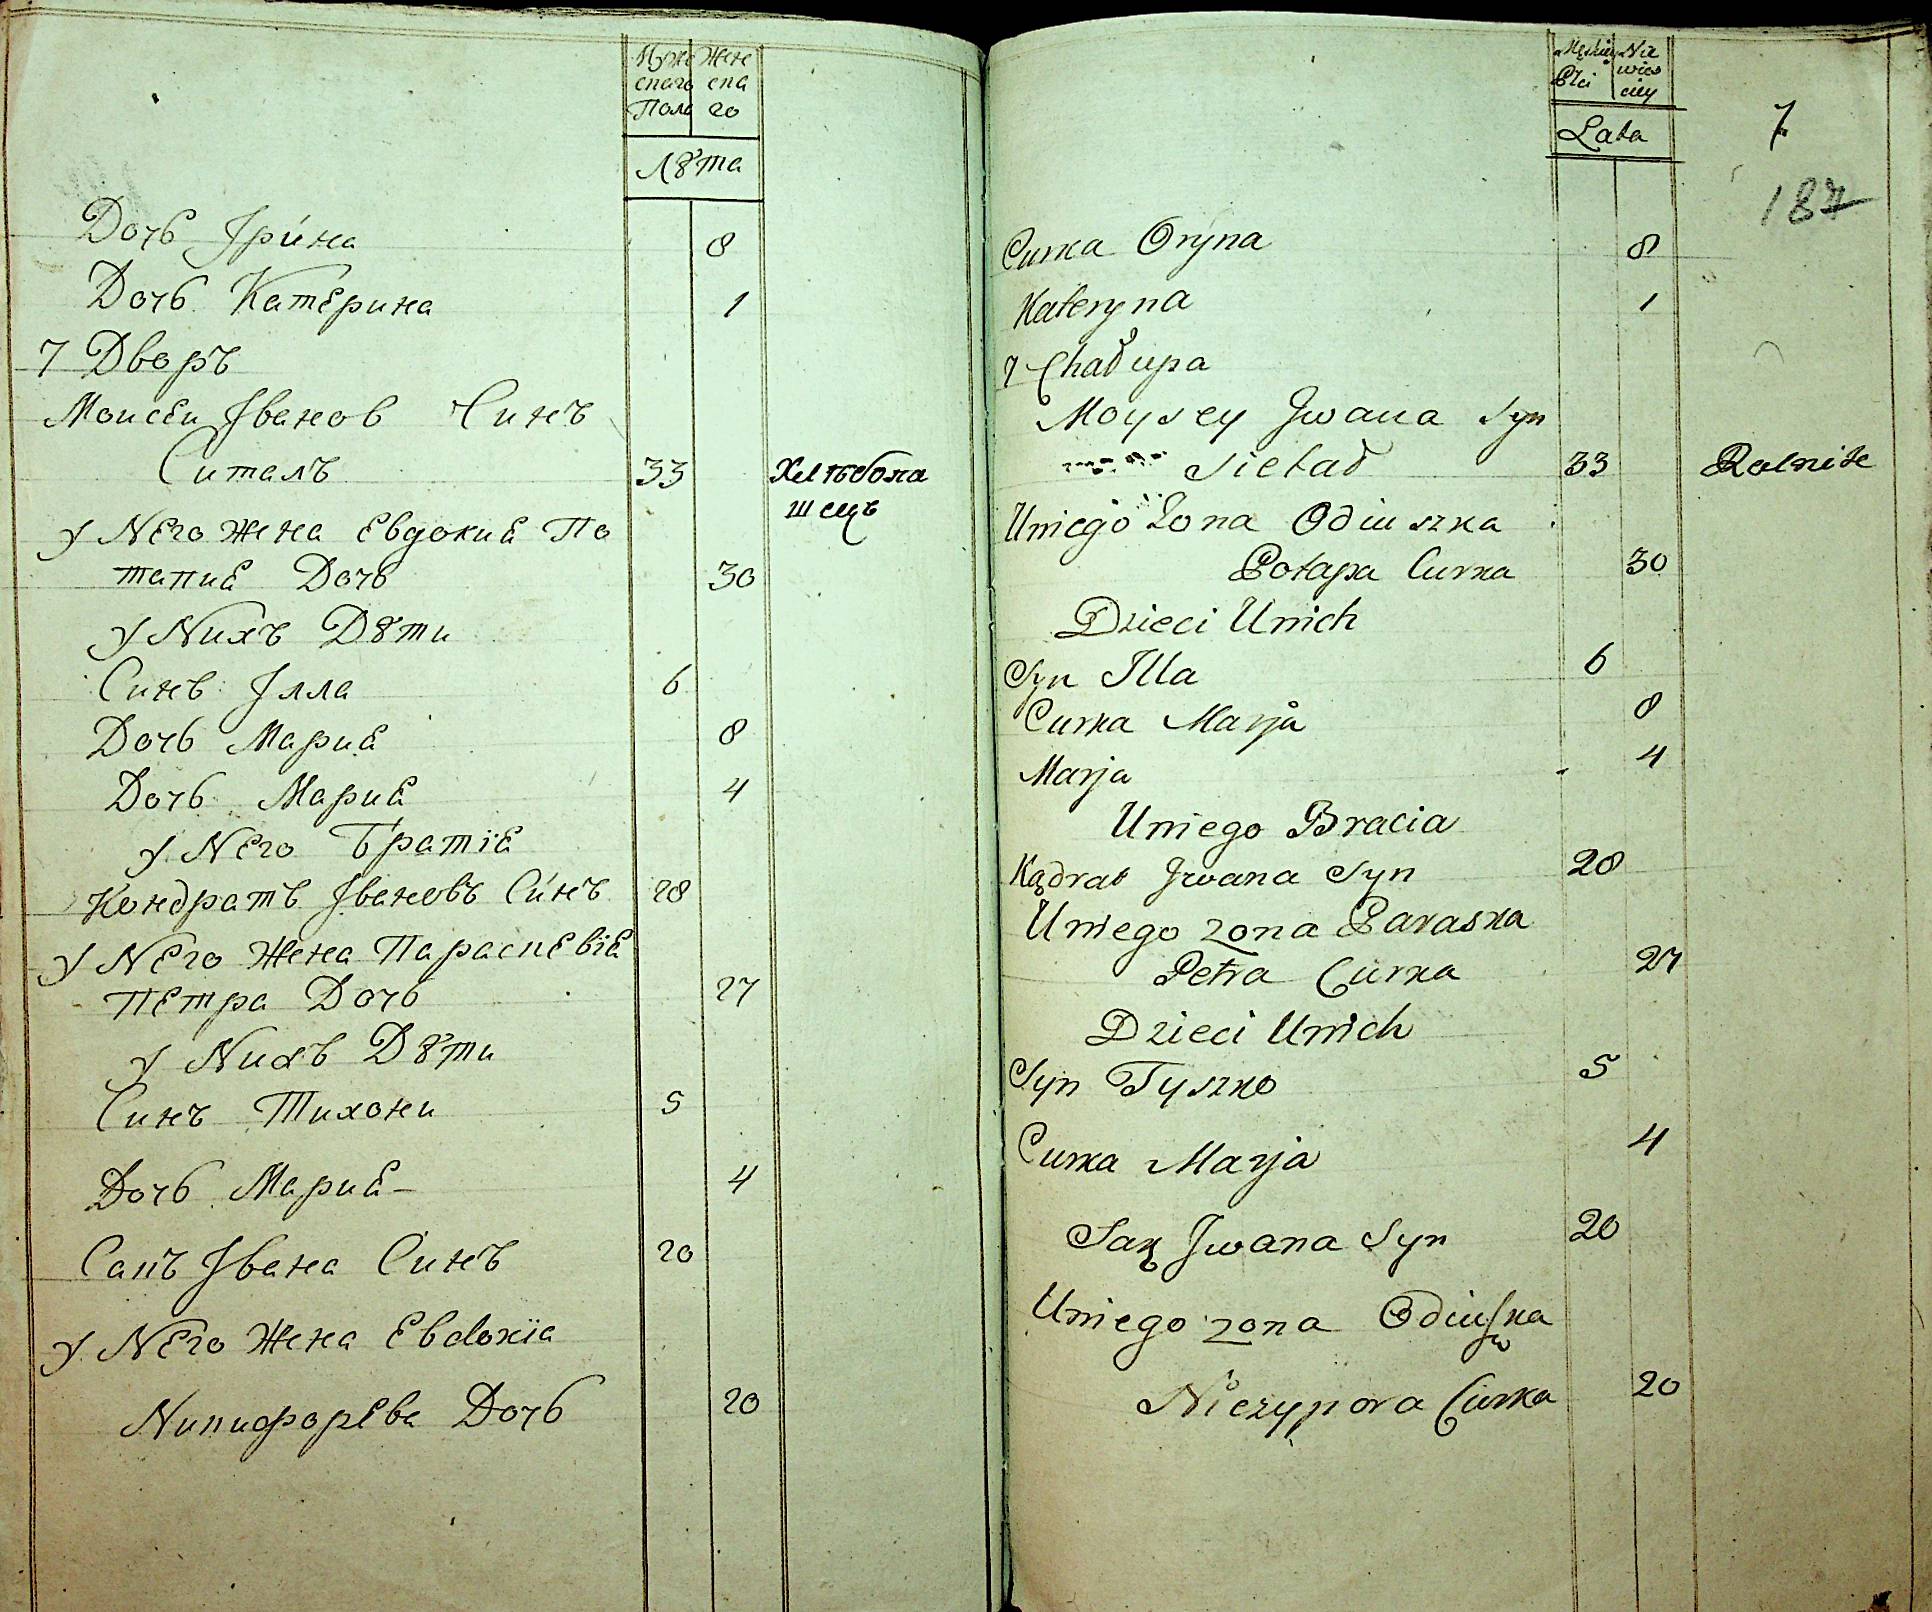 Муже Жене
скаго ска
Пола го
Лѣта
Дочь Іріна 8
Дочь Катерина 1
7 Дворъ
Моисеи Іванов Синъ
Ситалъ 33 Хлѣбопа
шецъ
У Него Жена Евдокие По
тапие Дочь 30
У Нихъ Дѣти
Синъ Ілла 6
Дочь Марие 8
Дочь Марие 4
У Него Братїе
Кондратъ Івановъ Синъ 28
У Него Жена Параскевіе
Петра Дочь 27
У Нихъ Дѣти
Синъ Тихони 5
Дочь Марие 4
Сакъ Івана Синъ 20
У Него Жена Евdокїа
Никифорева Дочь 20
Męskiey Nie
Płci wies
ciey
Lata
7
187
Curka Oryna 8
Kateryna 1
7 Chałupa
Moysey Jwana Syn
Sietał 33 Rolnik
Uniego Zona Odiuszka
Potapa Curka 30
Dzieci Unich
Syn Illa 6
Curka Marja 8
Marja 4
Uniego Bracia
Kądrat Jwana Syn 28
Uniego zona Paraska
Petra Curka 27
Dzieci Unich
Syn Tyszko 5
Curka Marja 4
Sak Jwana Syn 20
Uniego zona Odiuszka
Niczypora Curka 20